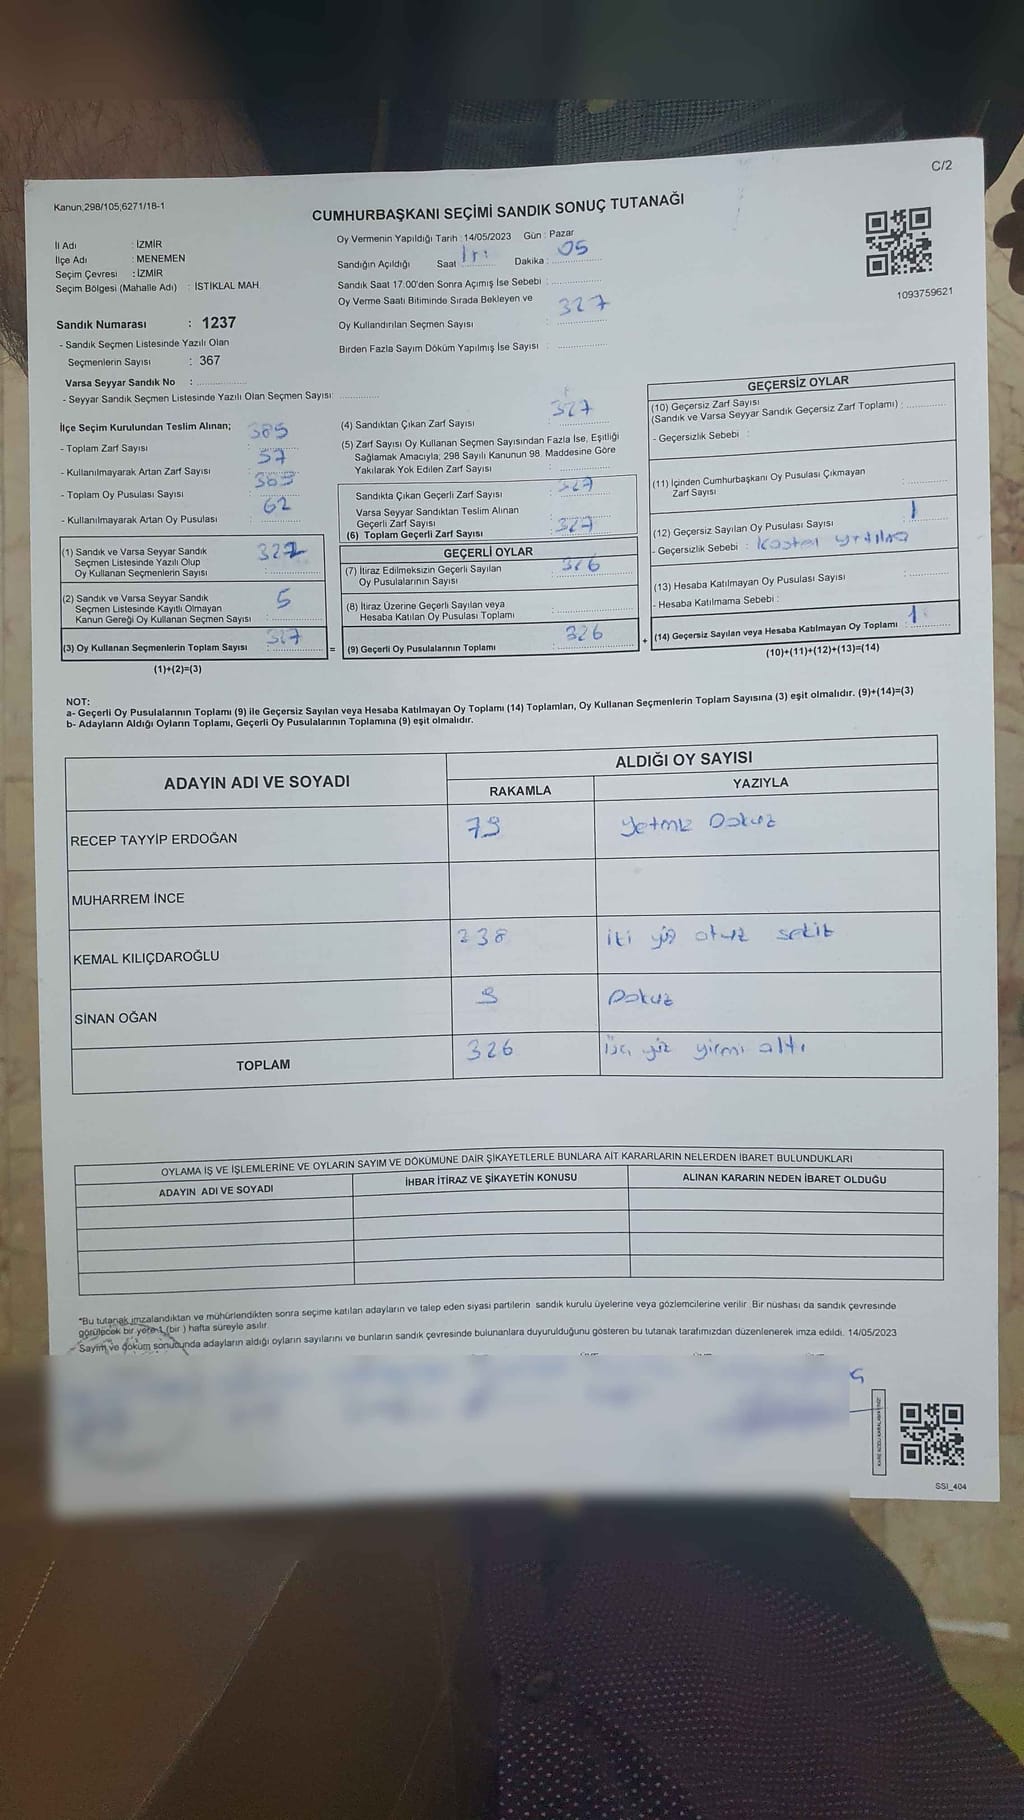 C/2
Kanun;298/105;6271/18-1
CUMHURBAŞKANI SEÇİMİ SANDIK SONUÇ TUTANAĞI
İl Adı : İZMİR
İlçe Adı : MENEMEN
Seçim Çevresi : İZMİR
Seçim Bölgesi (Mahalle Adı) : İSTİKLAL MAH.
Oy Vermenin Yapıldığı Tarih :14/05/2023 Gün : Pazar
Sandığın Açıldığı Saat Dakika : 05
Sandık Saat 17:00'den Sonra Açımış İse Sebebi :
Oy Verme Saati Bitiminde Sırada Bekleyen ve
Oy Kullandırılan Seçmen Sayısı : 327
Birden Fazla Sayım Döküm Yapılmış İse Sayısı :
1093759621
Sandık Numarası : 1237
- Sandık Seçmen Listesinde Yazılı Olan
Seçmenlerin Sayısı : 367
Varsa Seyyar Sandık No :
- Seyyar Sandık Seçmen Listesinde Yazılı Olan Seçmen Sayısı:
İlçe Seçim Kurulundan Teslim Alınan;
- Toplam Zarf Sayısı : 385
- Kullanılmayarak Artan Zarf Sayısı : 57
- Toplam Oy Pusulası Sayısı
- Kullanılmayarak Artan Oy Pusulası : 62
(1) Sandık ve Varsa Seyyar Sandık
Seçmen Listesinde Yazılı Olup
Oy Kullanan Seçmenlerin Sayısı : 322
(2) Sandık ve Varsa Seyyar Sandık
Seçmen Listesinde Kayıtlı Olmayan
Kanun Gereği Oy Kullanan Seçmen Sayısı : 5
(3) Oy Kullanan Seçmenlerin Toplam Sayısı : 327
(1)+(2)=(3)
(4) Sandıktan Çıkan Zarf Sayısı : 327
(5) Zarf Sayısı Oy Kullanan Seçmen Sayısından Fazla İse, Eşitliği
Sağlamak Amacıyla; 298 Sayılı Kanunun 98. Maddesine Göre
Yakılarak Yok Edilen Zarf Sayısı :
Sandıkta Çıkan Geçerli Zarf Sayısı : 327
Varsa Seyyar Sandıktan Teslim Alınan
Geçerli Zarf Sayısı :
(6) Toplam Geçerli Zarf Sayısı : 327
GEÇERLİ OYLAR
(7) İtiraz Edilmeksizin Geçerli Sayılan
Oy Pusulalarının Sayısı : 326
(8) İtiraz Üzerine Geçerli Sayılan veya
Hesaba Katılan Oy Pusulası Toplamı :
= (9) Geçerli Oy Pusulalarının Toplamı : 326 +
GEÇERSİZ OYLAR
(10) Geçersiz Zarf Sayısı
(Sandık ve Varsa Seyyar Sandık Geçersiz Zarf Toplamı) :
- Geçersizlik Sebebi :
(11) İçinden Cumhurbaşkanı Oy Pusulası Çıkmayan
Zarf Sayısı :
(12) Geçersiz Sayılan Oy Pusulası Sayısı : 1
- Geçersizlik Sebebi :
(13) Hesaba Katılmayan Oy Pusulası Sayısı :
- Hesaba Katılmama Sebebi :
(14) Geçersiz Sayılan veya Hesaba Katılmayan Oy Toplamı : 1
(10)+(11)+(12)+(13)=(14)
NOT:
a- Geçerli Oy Pusulalarının Toplamı (9) ile Geçersiz Sayılan veya Hesaba Katılmayan Oy Toplamı (14) Toplamları, Oy Kullanan Seçmenlerin Toplam Sayısına (3) eşit olmalıdır. (9)+(14)=(3)
b- Adayların Aldığı Oyların Toplamı, Geçerli Oy Pusulalarının Toplamına (9) eşit olmalıdır.
ADAYIN ADI VE SOYADI ALDIĞI OY SAYISI
RAKAMLA YAZIYLA
RECEP TAYYİP ERDOĞAN 79 Yetmiş Dokuz
MUHARREM İNCE
KEMAL KILIÇDAROĞLU 238 iki yüz otuz sekiz
SİNAN OĞAN 9 Dokuz
TOPLAM 326 üç yüz yirmi altı
OYLAMA İŞ VE İŞLEMLERİNE VE OYLARIN SAYIM VE DÖKÜMÜNE DAİR ŞİKAYETLERLE BUNLARA AİT KARARLARIN NELERDEN İBARET BULUNDUKLARI
ADAYIN ADI VE SOYADI İHBAR İTİRAZ VE ŞİKAYETİN KONUSU ALINAN KARARIN NEDEN İBARET OLDUĞU
*Bu tutanak imzalandıktan ve mühürlendikten sonra seçime katılan adayların ve talep eden siyasi partilerin sandık kurulu üyelerine veya gözlemcilerine verilir. Bir nüshası da sandık çevresinde
görülecek bir yere 1 (bir) hafta süreyle asılır.
Sayım ve döküm sonucunda adayların aldığı oyların sayılarını ve bunların sandık çevresinde bulunanlara duyurulduğunu gösteren bu tutanak tarafımızdan düzenlenerek imza edildi. 14/05/2023
SSI_404